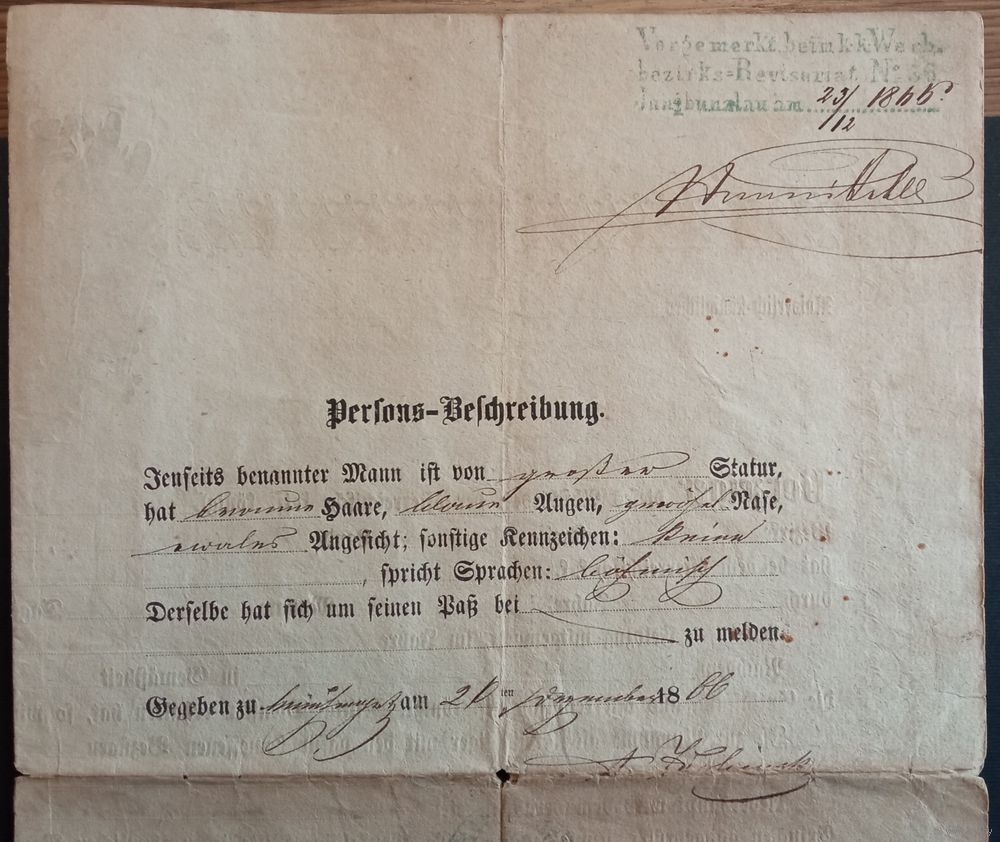 Vorgemerkt beim k.k. Werb.
bezirks=Revisoriat No 36
Jungbunzlau am 23/12 1866
Persons-Beschreibung.
Jenseits benannter Mann ist von großer Statur,
hat braune Haare, blaue Augen, Nase,
ovales Angesicht; sonstige Kennzeichen: Keine
, spricht Sprachen: böhmisch
Derselbe hat sich um seinen Paß bei
zu melden.
Gegeben zu am ten Dezember 1866